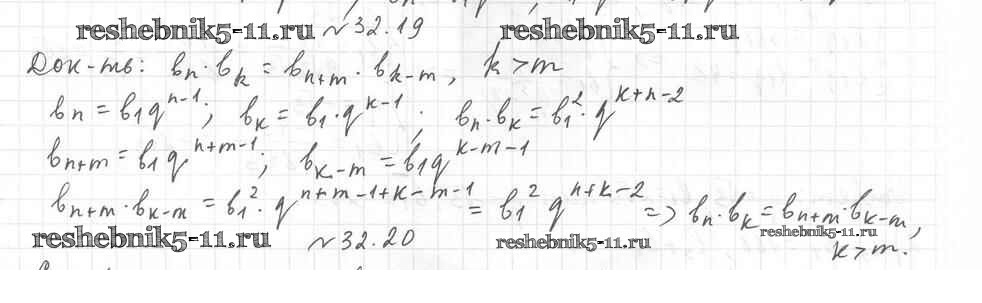 reshebnik5-11.ru №32.19 reshebnik5-11.ru
Док-ть: bₙ·bₖ = bₙ₊ₘ·bₖ₋ₘ, k>m
bₙ = b₁qⁿ⁻¹; bₖ = b₁·qᵏ⁻¹; bₙ·bₖ = b₁²·qᵏ⁺ⁿ⁻²
bₙ₊ₘ = b₁qⁿ⁺ᵐ⁻¹; bₖ₋ₘ = b₁qᵏ⁻ᵐ⁻¹
bₙ₊ₘ·bₖ₋ₘ = b₁²·qⁿ⁺ᵐ⁻¹⁺ᵏ⁻ᵐ⁻¹ = b₁²qⁿ⁺ᵏ⁻² => bₙ·bₖ = bₙ₊ₘ·bₖ₋ₘ,
reshebnik5-11.ru
k>m.
reshebnik5-11.ru №32.20 reshebnik5-11.ru